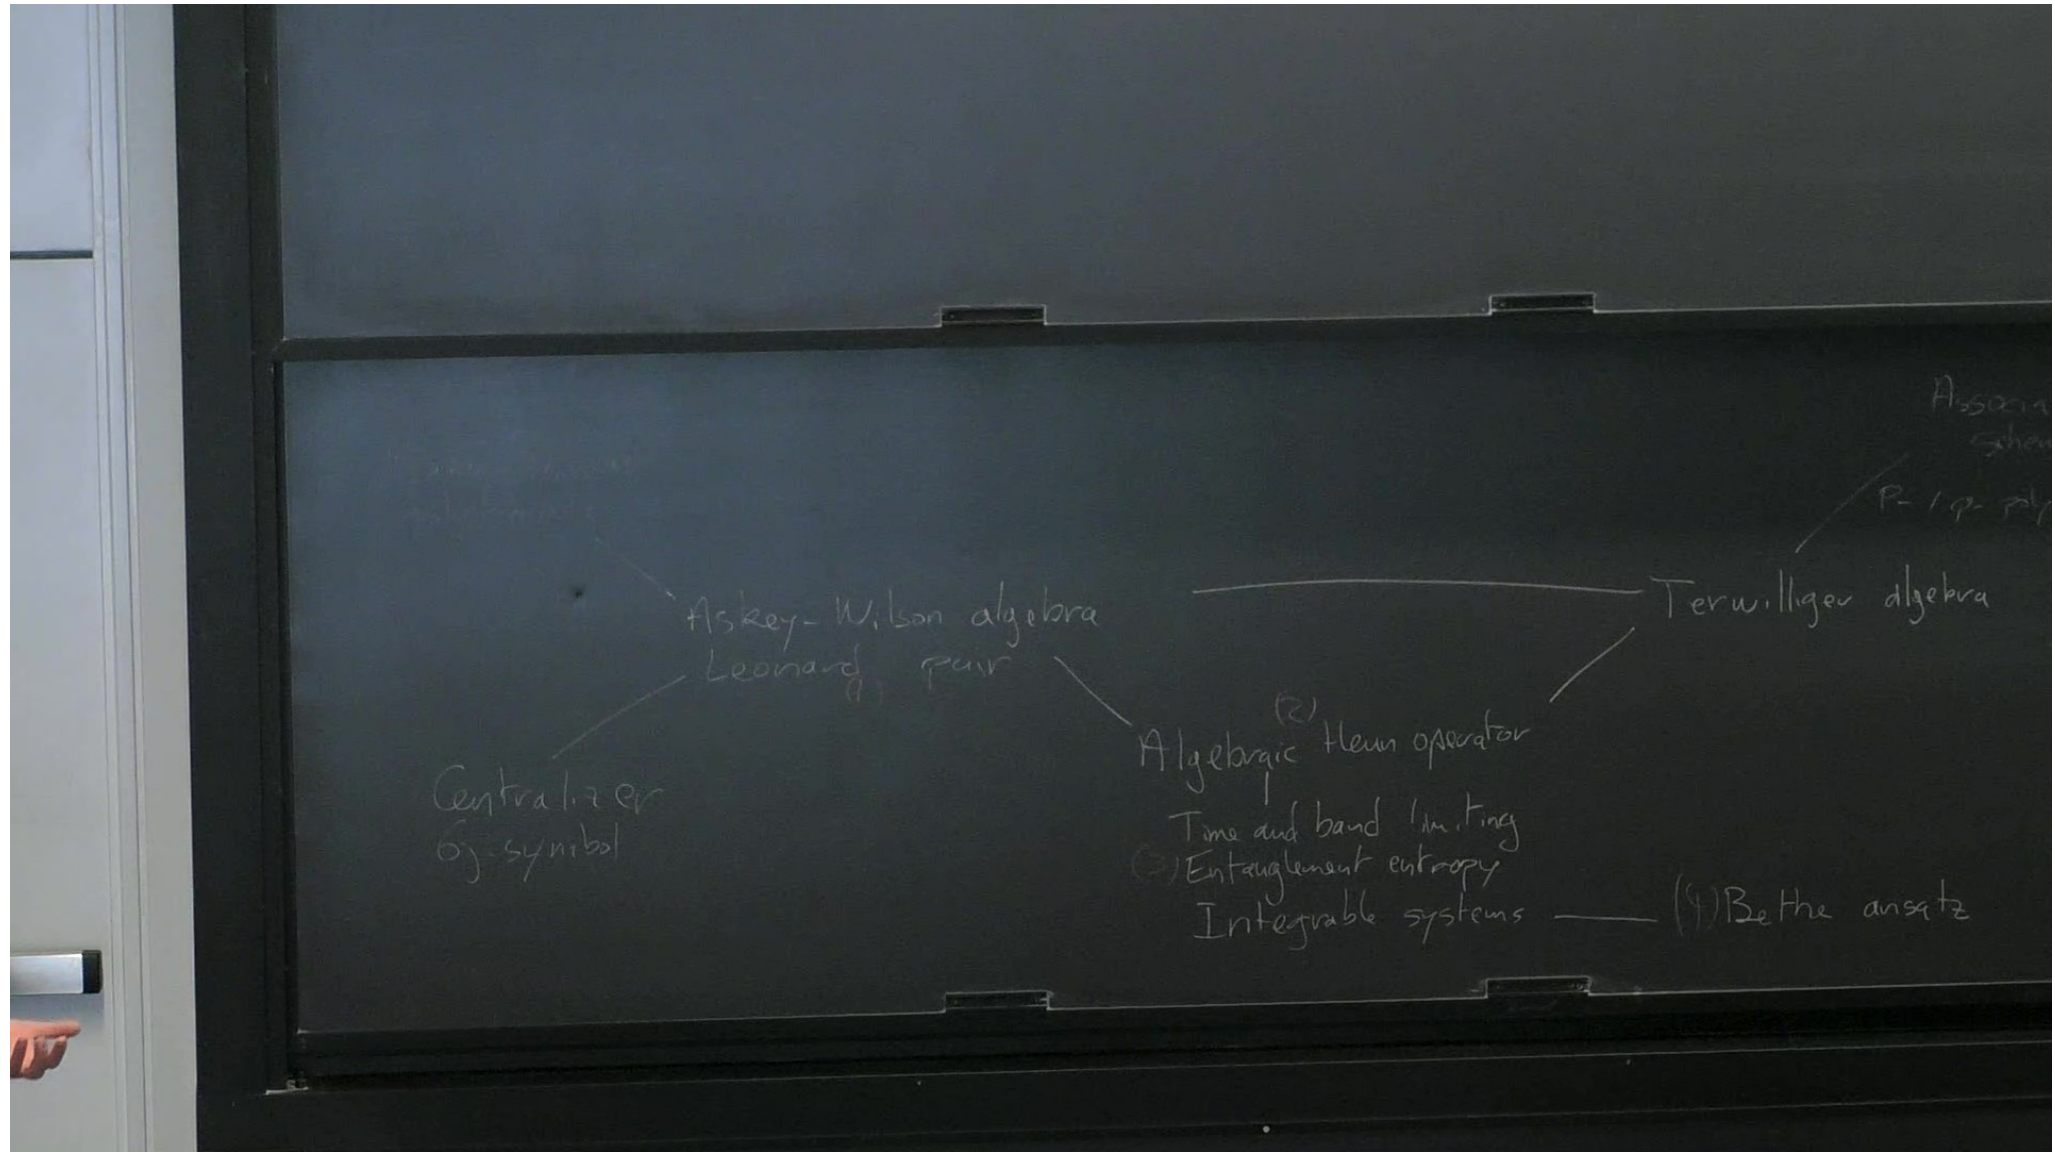 Associa
schem
P- / q- poly
Askey-Wilson algebra
Leonard pair
(1)
Terwilliger algebra
(2)
Algebraic Heun operator
Centralizer
6j-symbol
Time and band limiting
(3) Entanglement entropy
Integrable systems
(4) Bethe ansatz